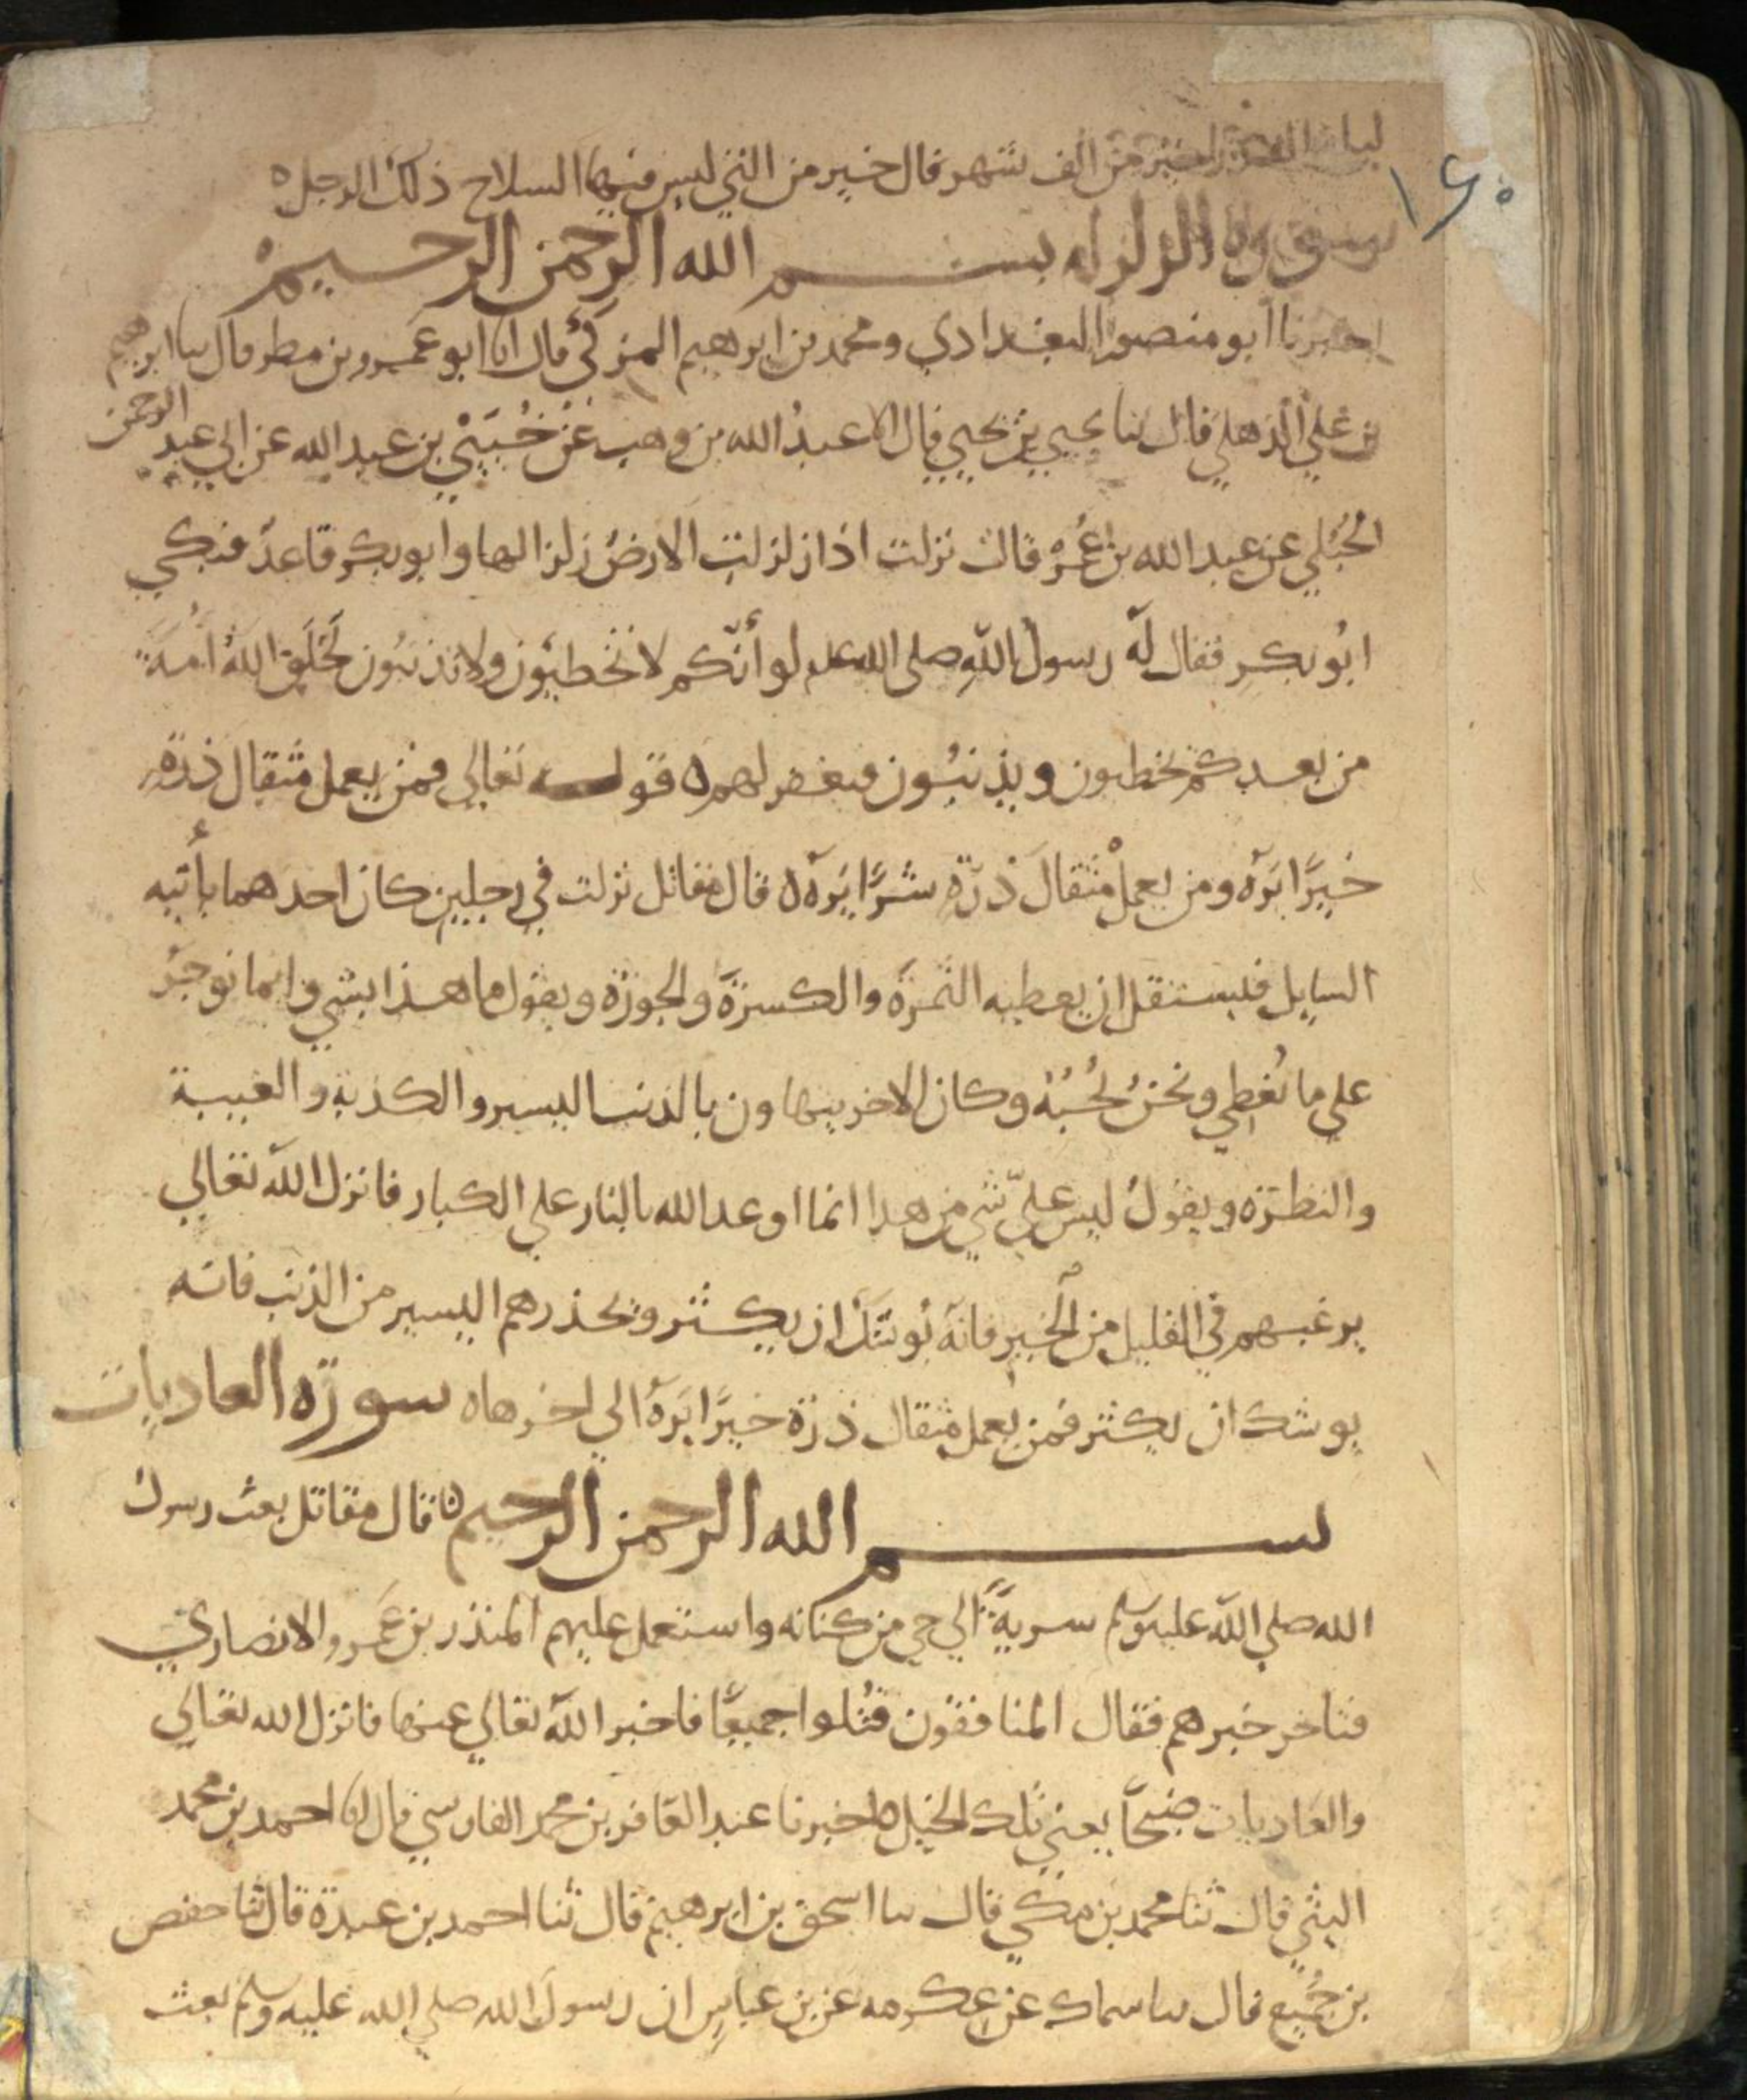 ليلة القدر خير من الف شهر قال خير من التي لبس فيها السلاح ذلك الرجل ه
١٤٠
سورة الزلزله بسم الله الرحمن الرحيم
اخبرنا ابو منصور البغدادي ومحمد بن ابرهيم المزكي قال انا ابو عمرو بن مطر قال ثنا ابرهيم
بن علي الذهلي قال ثنا يحيي بن يحيي قال انا عبدُ الله بن وهب عن حُييّ بن عبد الله عن ابي عبد الرحمن
الحُبُلي عن عبد الله بن عُمر قال نزلت اذا زلزلت الارضُ زلزالها وابو بكر قاعدٌ فبكي
ابُو بكرٍ فقال له رسولُ اللهِ صلى الله علم لو أنّكم لا تخطيُون ولا تذنبُون لخَلَق اللهُ امةً
من بعدكم يخطون ويذنبُون فيغفر لهم ه قوله تعالي فمن يعمل مثقال ذرةٍ
خيرًا يَرهُ ومن يعملْ مثقالَ ذرّةٍ شرًّا يَرهُ ه قال مقاتل نزلت في رجلين كان احدهما يأتيه
السايل فيستقل ان يعطيه التمرة والكسرة والجوزة ويقول ما هذا بشي وانما نوجَرُ
علي ما نُعْطي ونحنُ نُحبُهُ وكان الاخر يتهاون بالذنب اليسير والكذبة والغيبة
والنظرة ويقولُ ليس عليّ شي من هدا انما اوعد الله بالنار علي الكبار فانزل الله تعالي
يرغبهم في القليل من الخيرِ فانهُ يُوشكُ ان يكثر وتحذرهم اليسير من الذنب فانه
يوشك ان يكثر فمن يعمل مثقال ذرة خيرًا يَرهُ الي اخرها ه سورة العاديات
بسم الله الرحمن الرحيم ه قال مقاتل بعث رسول
الله صلي الله عليه وسلم سريةً الي حي من كنانه واستعمل عليهم المنذر بن عَمرو الانصاري
فتاخر خبرهم فقال المنافقون قُتلوا جميعًا فاخبر الله تعالي عنها فانزل الله تعالي
والعَاديات ضبحًا يعني تلك الخيل ه اخبرنا عبد الغافر بن محمد الفارسي قال انا احمد بن محمد
البتي قال ثنا محمد بن مكي قال ثنا اسحق بن ابرهيم قال ثنا احمد بن عبدة قال ثنا حفص
بن جُميع قال ثنا سماك عن عكرمه عن بن عباسٍ ان رسولَ الله صلي الله عليه وسلم بعث